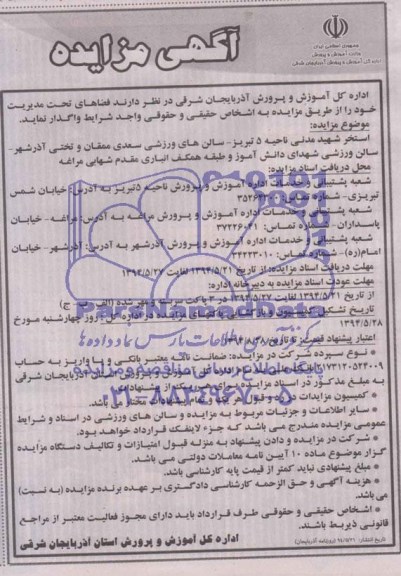 جمهوری اسلامی ایران
وزارت آموزش و پرورش
اداره کل آموزش و پرورش آذربایجان شرقی
آگهی مزایده
اداره کل آموزش و پرورش آذربایجان شرقی در نظر دارند فضاهای تحت مدیریت
خود را از طریق مزایده به اشخاص حقیقی و حقوقی واجد شرایط واگذار نماید.
موضوع مزایده:
استخر شهید مدنی ناحیه ۵ تبریز- سالن های ورزشی سعدی ممقان و تختی آذرشهر-
سالن ورزشی شهدای دانش آموز و طبقه همکف انباری مقدم شهابی مراغه
محل دریافت اسناد مزایده:
شعبه پشتیبانی و خدمات اداره آموزش و پرورش ناحیه ۵ تبریز به آدرس: خیابان شمس
تبریزی- شماره تماس:
شعبه پشتیبانی و خدمات اداره آموزش و پرورش مراغه به آدرس: مراغه - خیابان
پاسداران - شماره تماس: ۳۷۲۲۶۰۲۱
شعبه پشتیبانی و خدمات اداره آموزش و پرورش آذرشهر به آدرس: آذرشهر - خیابان
امام(ره)- شماره تماس: ۳۴۲۲۳۰۱۰
مهلت دریافت اسناد مزایده: از تاریخ ۱۳۹۴/۵/۲۱ لغایت ۱۳۹۴/۵/۲۷
مهلت عودت اسناد مزایده به دبیرخانه اداره:
از تاریخ ۱۳۹۴/۵/۲۱ لغایت ۱۳۹۴/۵/۲۷ در ۳ پاکت سربسته و مهر شده (الف - ب - ج)
تاریخ تشکیل کمیسیون و بازگشایی پاکتهای مزایده در اداره کل: روز چهارشنبه مورخ
۱۳۹۴/۵/۲۸
اعتبار پیشنهاد قیمت: تا تاریخ
• نوع سپرده شرکت در مزایده: ضمانت نامه معتبر بانکی و یا واریز به حساب
۲۱۷۳۱۲۰۵۲۳۰۰۹ آموزش و پرورش استان آذربایجان شرقی
به مبلغ مذکور در اسناد مزایده برای هر یک از پیشنهادها
• کمیسیون مزایدات در رد و قبول هر یک یا تمام پیشنهادات مختار می باشد.
• سایر اطلاعات و جزئیات مربوط به مزایده و سالن های ورزشی در اسناد و شرایط
عمومی مزایده مندرج می باشد که جزء لاینفک قرارداد خواهد بود.
• شرکت در مزایده و دادن پیشنهاد به منزله قبول امتیازات و تکالیف دستگاه مزایده
گزار موضوع ماده ۱۰ آیین نامه معاملات دولتی می باشد.
• مبلغ پیشنهادی نباید کمتر از قیمت پایه کارشناسی باشد.
• هزینه آگهی و حق الزحمه کارشناسی دادگستری بر عهده برنده مزایده (به نسبت)
می باشد.
• اشخاص حقیقی و حقوقی طرف قرارداد باید دارای مجوز فعالیت معتبر از مراجع
قانونی ذیربط باشند.
اداره کل آموزش و پرورش استان آذربایجان شرقی
تاریخ انتشار: ۹۴/۵/۲۱
پایگاه اطلاع رسانی مناقصه و مزایده
۰۲۱-۸۸۳۴۹۶۷۰-۵